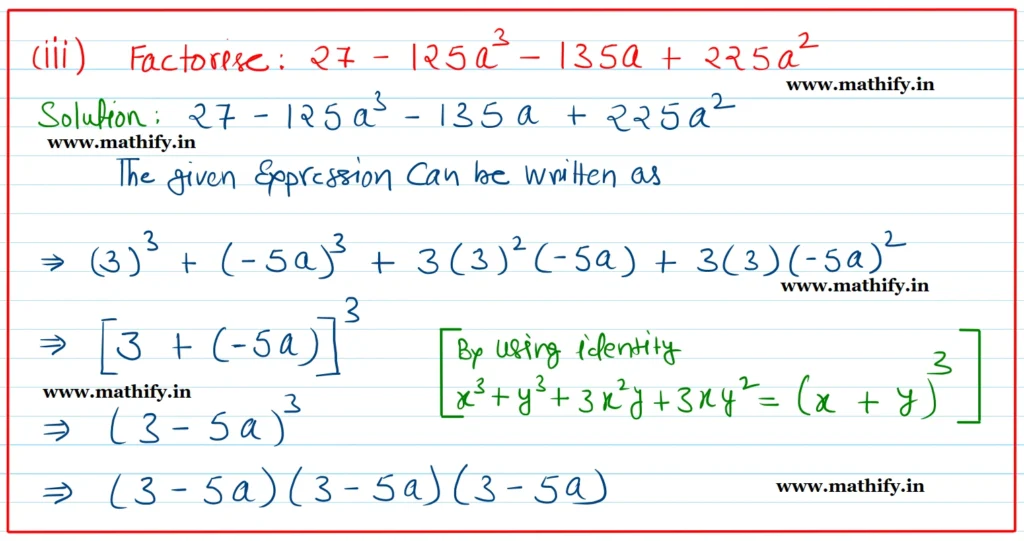 (iii) Factorise: 27 - 125a³ - 135a + 225a²
www.mathify.in
Solution: 27 - 125a³ - 135a + 225a²
www.mathify.in
The given Expression Can be written as
⇒ (3)³ + (-5a)³ + 3(3)²(-5a) + 3(3)(-5a)²
www.mathify.in
⇒ [3 + (-5a)]³
[By using identity
x³ + y³ + 3x²y + 3xy² = (x + y)³]
www.mathify.in
⇒ (3 - 5a)³
⇒ (3 - 5a)(3 - 5a)(3 - 5a)
www.mathify.in